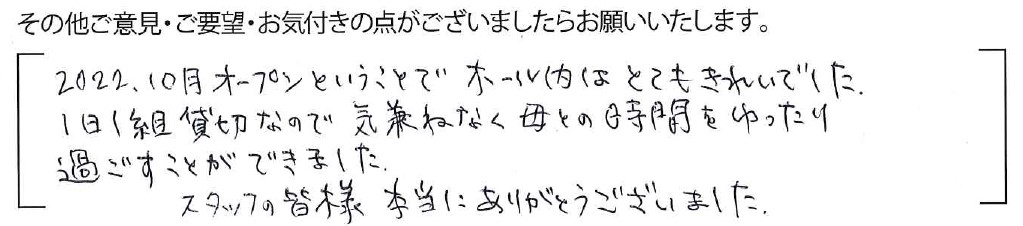 その他ご意見・ご要望・お気付きの点がございましたらお願いいたします。
2022.10月オープンということで ホール内はとてもきれいでした.
1日1組貸切なので 気兼ねなく母との時間をゆったり
過ごすことができました.
スタッフの皆様 本当にありがとうございました.